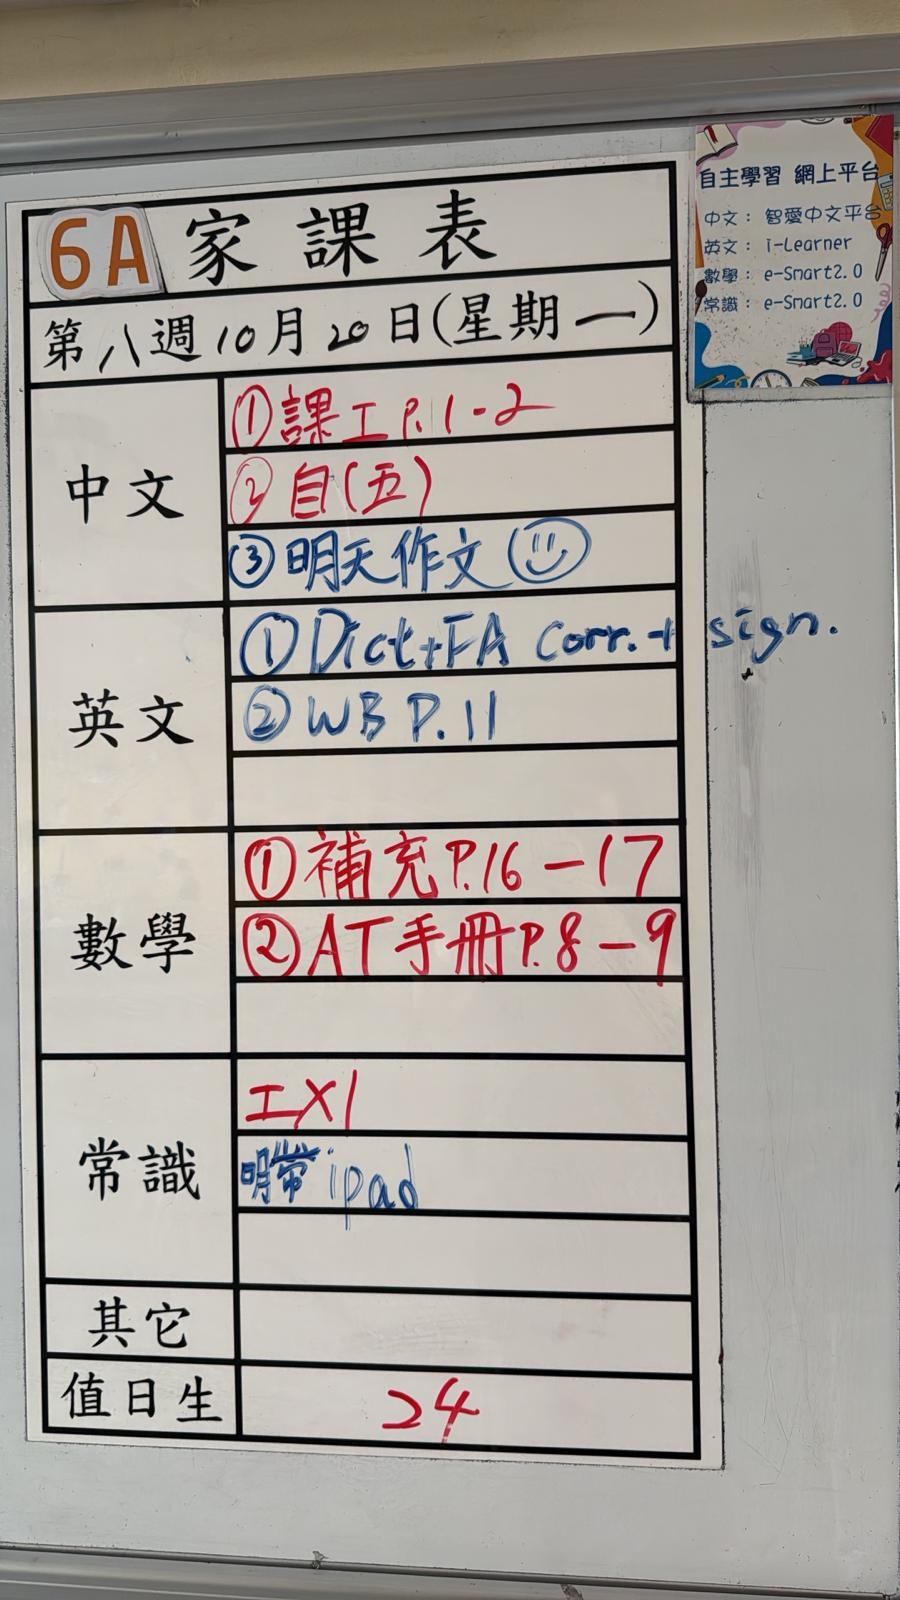 6A 家課表
第八週10月20日(星期一)
中文
①課工P.1-2
②自(五)
③明天作文
英文
①Dict+FA Corr.+ sign.
②WB P.11
數學
①補充P.16-17
②AT手冊P.8-9
常識
工X1
明常ipad
其它
值日生
24
自主學習 網上平台
中文：智愛中文平台
英文：i-Learner
數學：e-Smart2.0
常識：e-Smart2.0